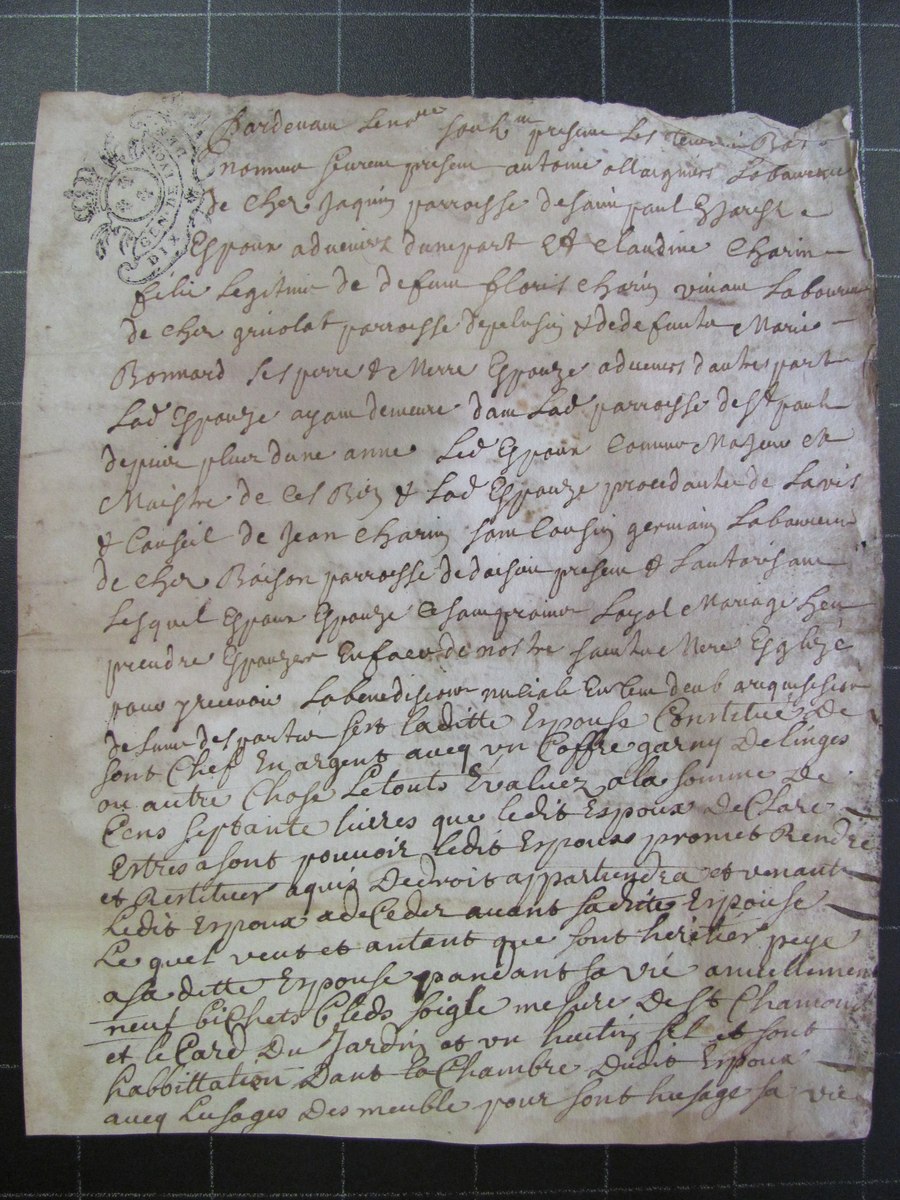 GEN DE LYON
DIX
Pardevant le no.re soub.ne present les temoin Bas
nomme feurent present antoine ollaignier Laboureur
de chez Jaquin parroisse de sainct paul En Jarest
Espoux advenir dune part Et Claudine Charin
fillie Legitime de defunt floris charin vivant Laboureur
de chez grivolat parroisse de pelusin & de defunte Marie
Bonnard ses perre & Merre Espouze advenir dautre part
Lad Espouze ayant demeure dans Lad parroisse de St paul
depuis plus dune anne Led Espoux Comme Majeur Et
Maistre de ces Bien & Lad Espouze procedante de Lavis
& Conseil de Jean Charin sont Cousin germain Laboureur
de chez Boison parroisse de doisieu present & Lautorisant
Lesquel Espoux Espouze se sont promis Loyal Mariage
prendre Espouzer En face de nostre sainte Mere Esglize
pour y recevoir La benedision nuliale En
de Lune des partie sest laditte Espouse Constitué De
sont Chef En argent avecq un Coffre garny De linges
ou autre Chose Le touts Evaluez a la somme De
Cens septante livres que ledit Espoux De Clare
Estres a sont pouvoir ledit Espoux promet Rendre
et Restituer a quis De droit appartiendra et venant
Ledit Espoux a de Ceder avant sa dite Espouse
Le quel veut et antant que sont heritier peye
a sa ditte Espouse pandant sa vié anuellement
neuf biChets bleds soigle mesure De St Chamond
et le Card Du Jardin et un huitin sel et sont
habbittation Dant la Chambre Dudit Espoux
avecq Lusages Des meuble pour sont husage sa vie